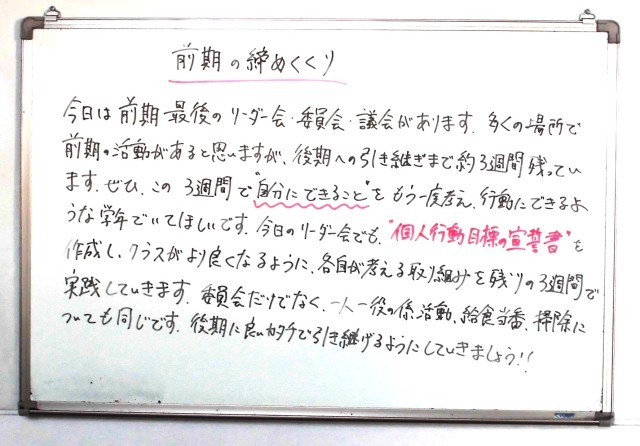 前期の締めくくり
今日は前期最後のリーダー会・委員会・議会があります。多くの場所で
前期の活動があると思いますが、後期への引き継ぎまで約3週間残ってい
ます。ぜひ、この3週間で"自分にできること"をもう一度考え、行動にできるよ
うな学年でいてほしいです。今日のリーダー会でも、"個人行動目標の宣誓書"を
作成し、クラスがより良くなるように、各自が考える取り組みを残りの3週間で
実践していきます。委員会だけでなく、一人一役の係活動、給食当番、掃除に
ついても同じです。後期に良いカタチで引き継げるようにしていきましょう!!